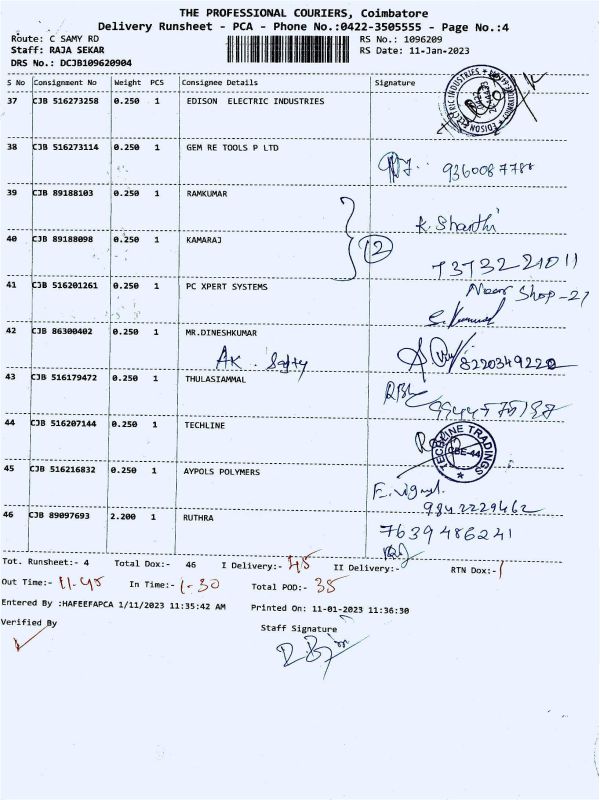 THE PROFESSIONAL COURIERS, Coimbatore
Delivery Runsheet - PCA - Phone No.:0422-3505555 - Page No.:4
Route: C SAMY RD RS No.: 1096209
Staff: RAJA SEKAR RS Date: 11-Jan-2023
DRS No.: DCJB109620904
S No Consignment No Weight PCS Consignee Details Signature
37 CJB 516273258 0.250 1 EDISON ELECTRIC INDUSTRIES
38 CJB 516273114 0.250 1 GEM RE TOOLS P LTD
39 CJB 89188103 0.250 1 RAMKUMAR
K. Shanthi
40 CJB 89188098 0.250 1 KAMARAJ 2
7373221011
41 CJB 516201261 0.250 1 PC XPERT SYSTEMS Near Shop-27
42 CJB 86300402 0.250 1 MR.DINESHKUMAR
AK. Safty 8220349220
43 CJB 516179472 0.250 1 THULASIAMMAL
44 CJB 516207144 0.250 1 TECHLINE TECHLINE TRADINGS CBE-44
45 CJB 516216832 0.250 1 AYPOLS POLYMERS
9842229462
46 CJB 89097693 2.200 1 RUTHRA 7639486241
Tot. Runsheet:- 4 Total Dox:- 46 I Delivery:- 45 II Delivery:- RTN Dox:- 1
Out Time:- 11-45 In Time:- 1-30 Total POD:- 38
Entered By :HAFEEFAPCA 1/11/2023 11:35:42 AM Printed On: 11-01-2023 11:36:30
Verified By Staff Signature